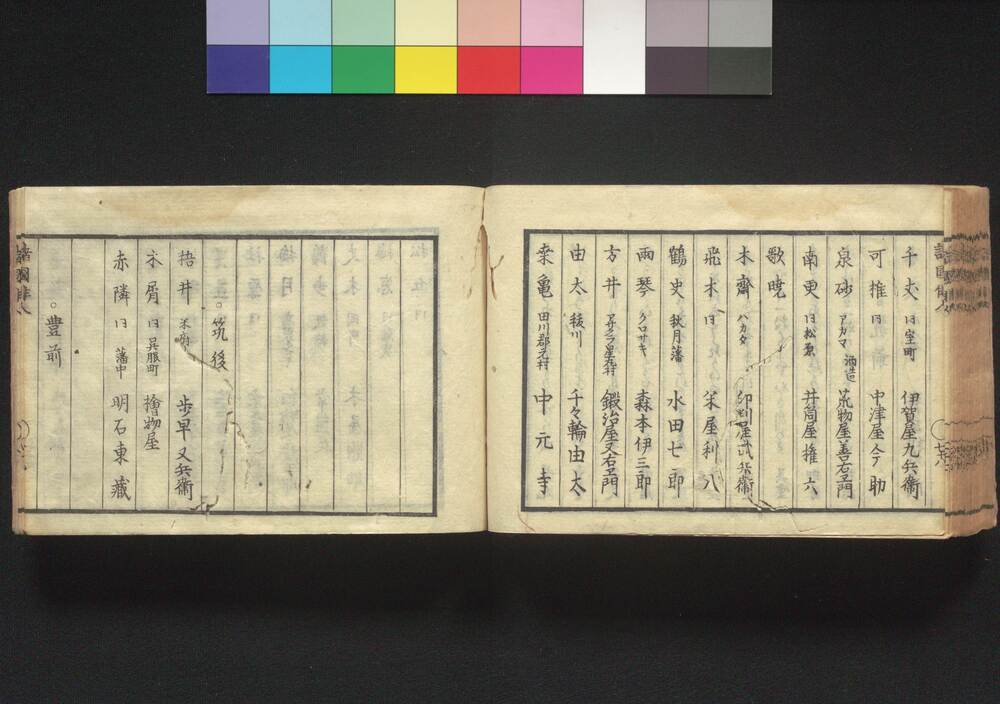 千丈 仝 室町 伊賀屋九兵衛
可推 仝 中津屋今助
泉砂 アカマ 酒造 荒物屋善右衛門
南更 仝 松原 井筒屋権六
歌暁
木齋 ハカタ 屋武兵衛
飛木 仝 米屋利八
鶴史 秋月藩 水田七郎
雨琴 クロサキ 森本伊三郎
方井 アサクラ星丸村 鍛冶屋又右衛門
由太 秡川 千々輪由太
桒亀 田川郡 村 中元寺
。筑後
梧井 歩早又兵衛
禾屑 仝 呉服町 檜物屋
赤隣 仝 藩中 明石東藏
。豊前